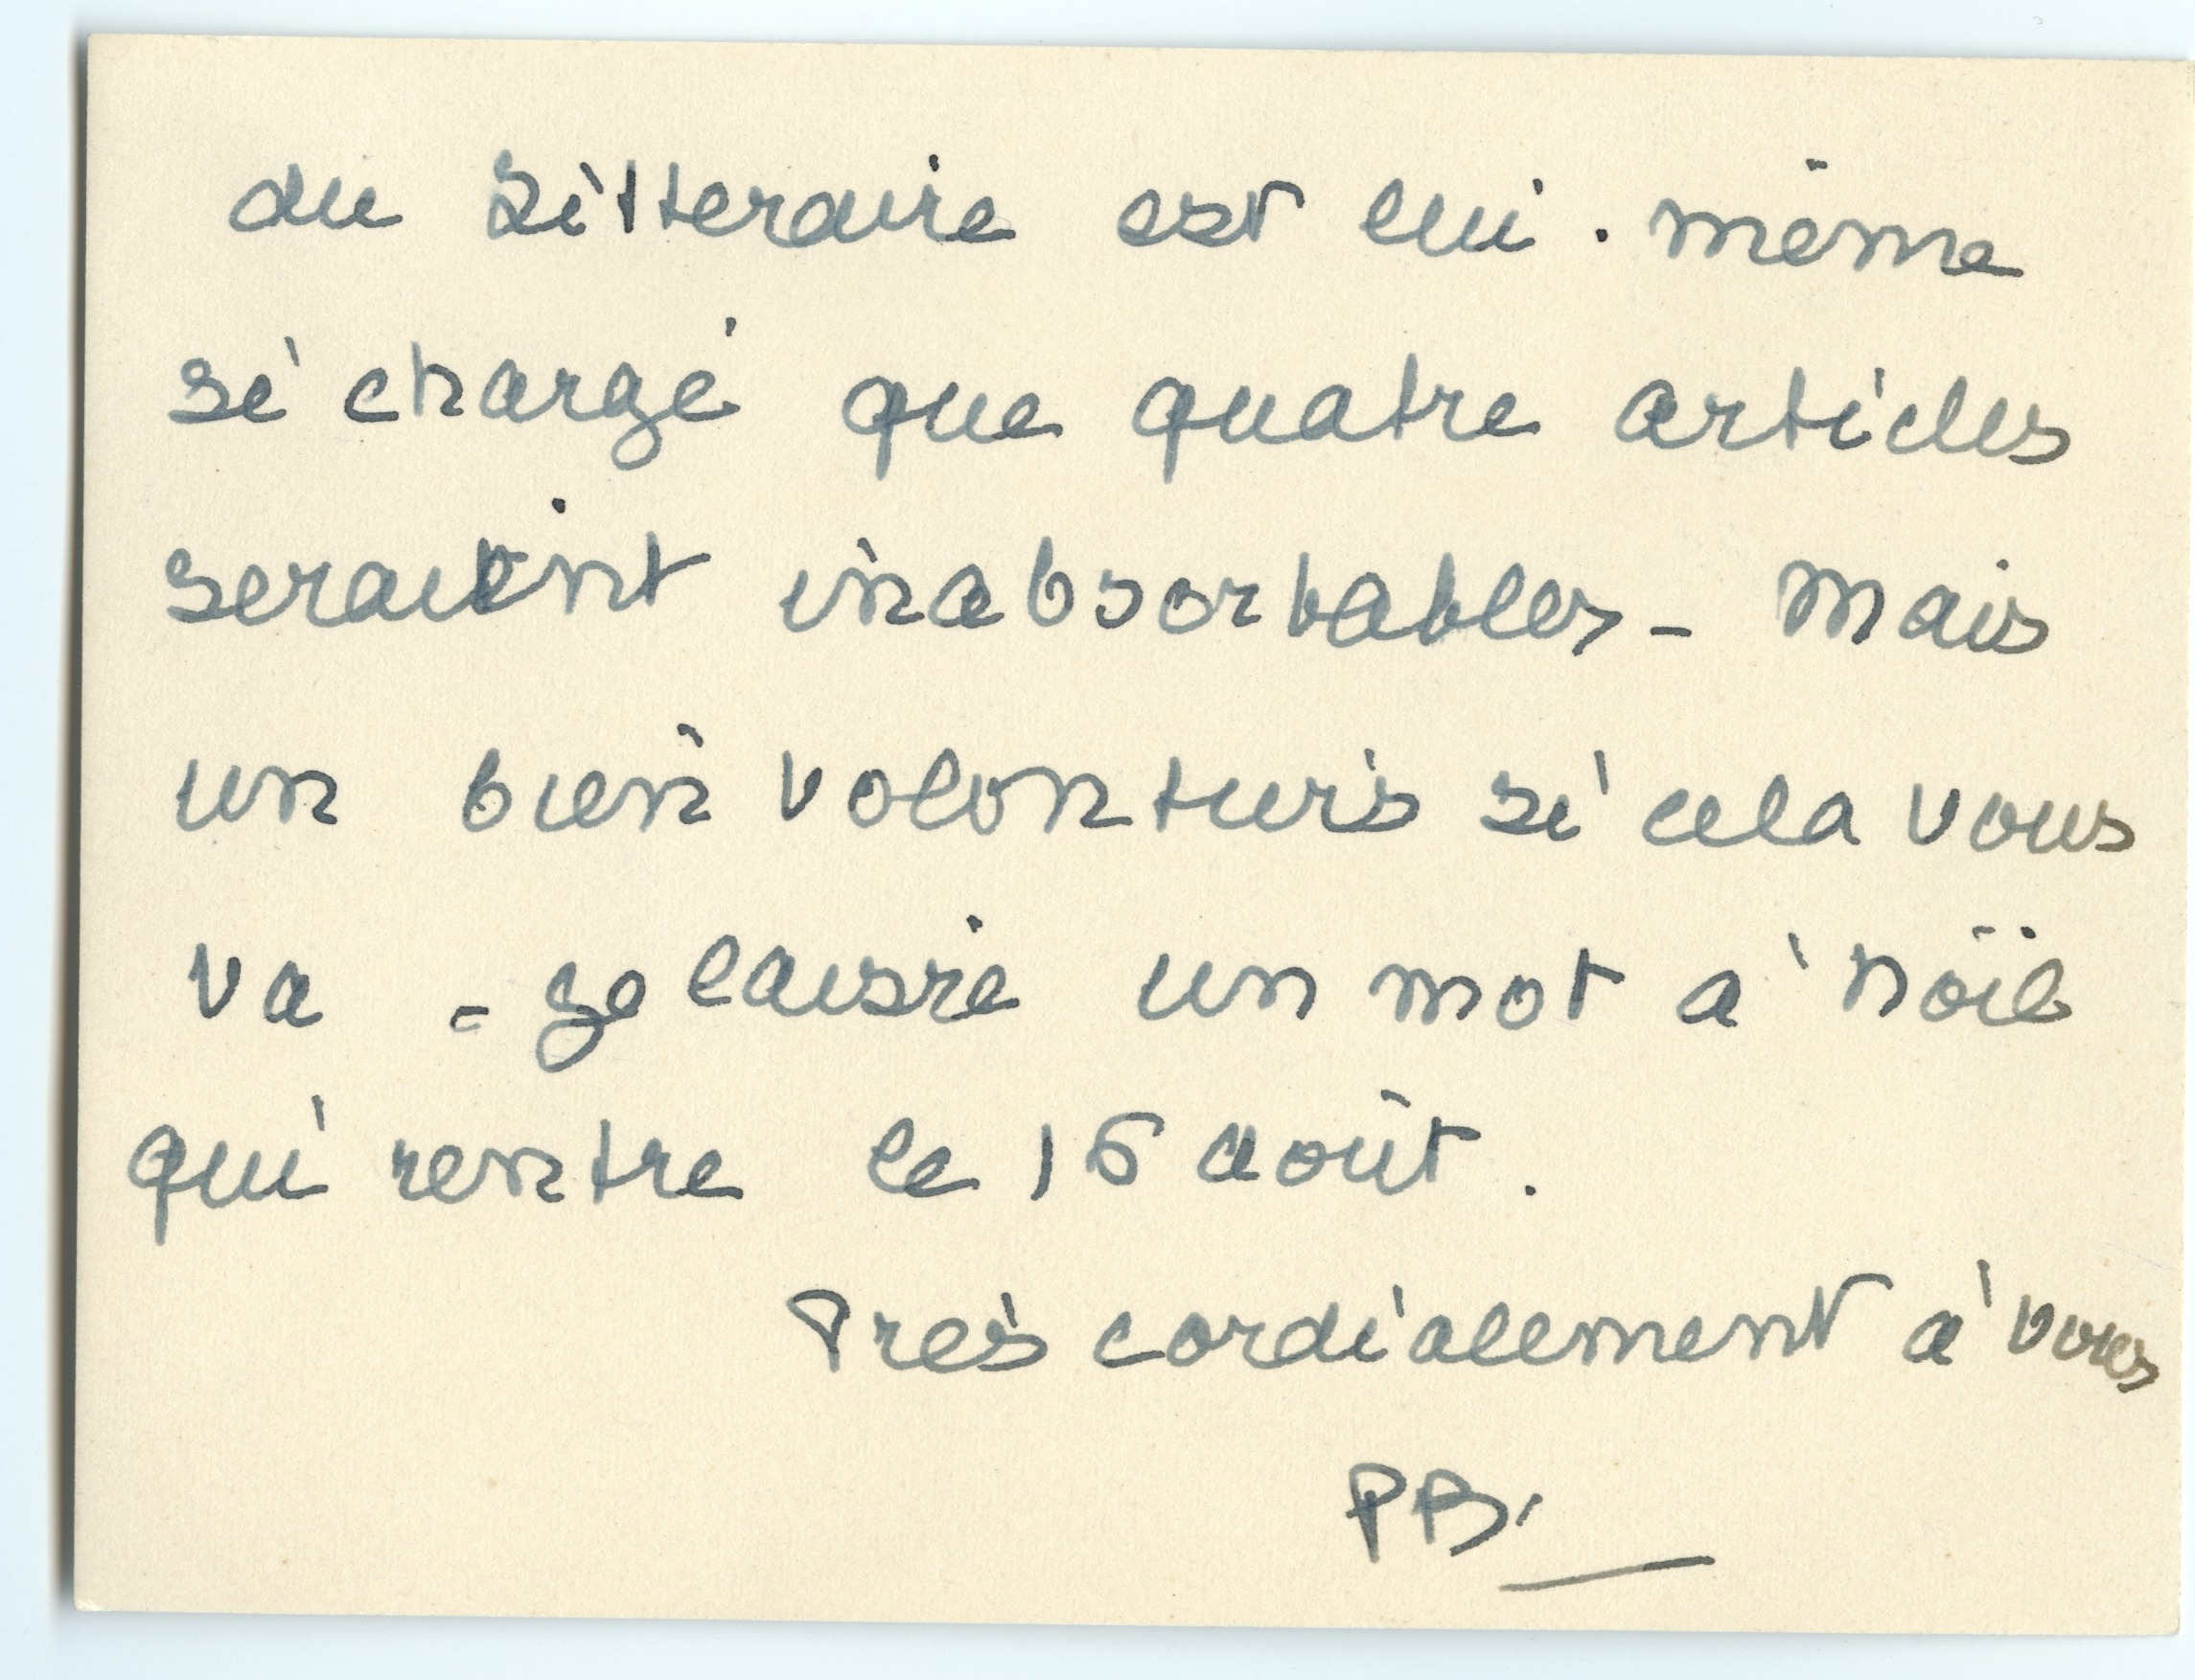 du Litteraire est lui-même
si chargé que quatre articles
seraient inabsorbables - Mais
un bien volontiers si cela vous
va - Je laisse un mot à Noël
qui rentre le 16 août.
Très cordialement à vous
PB.